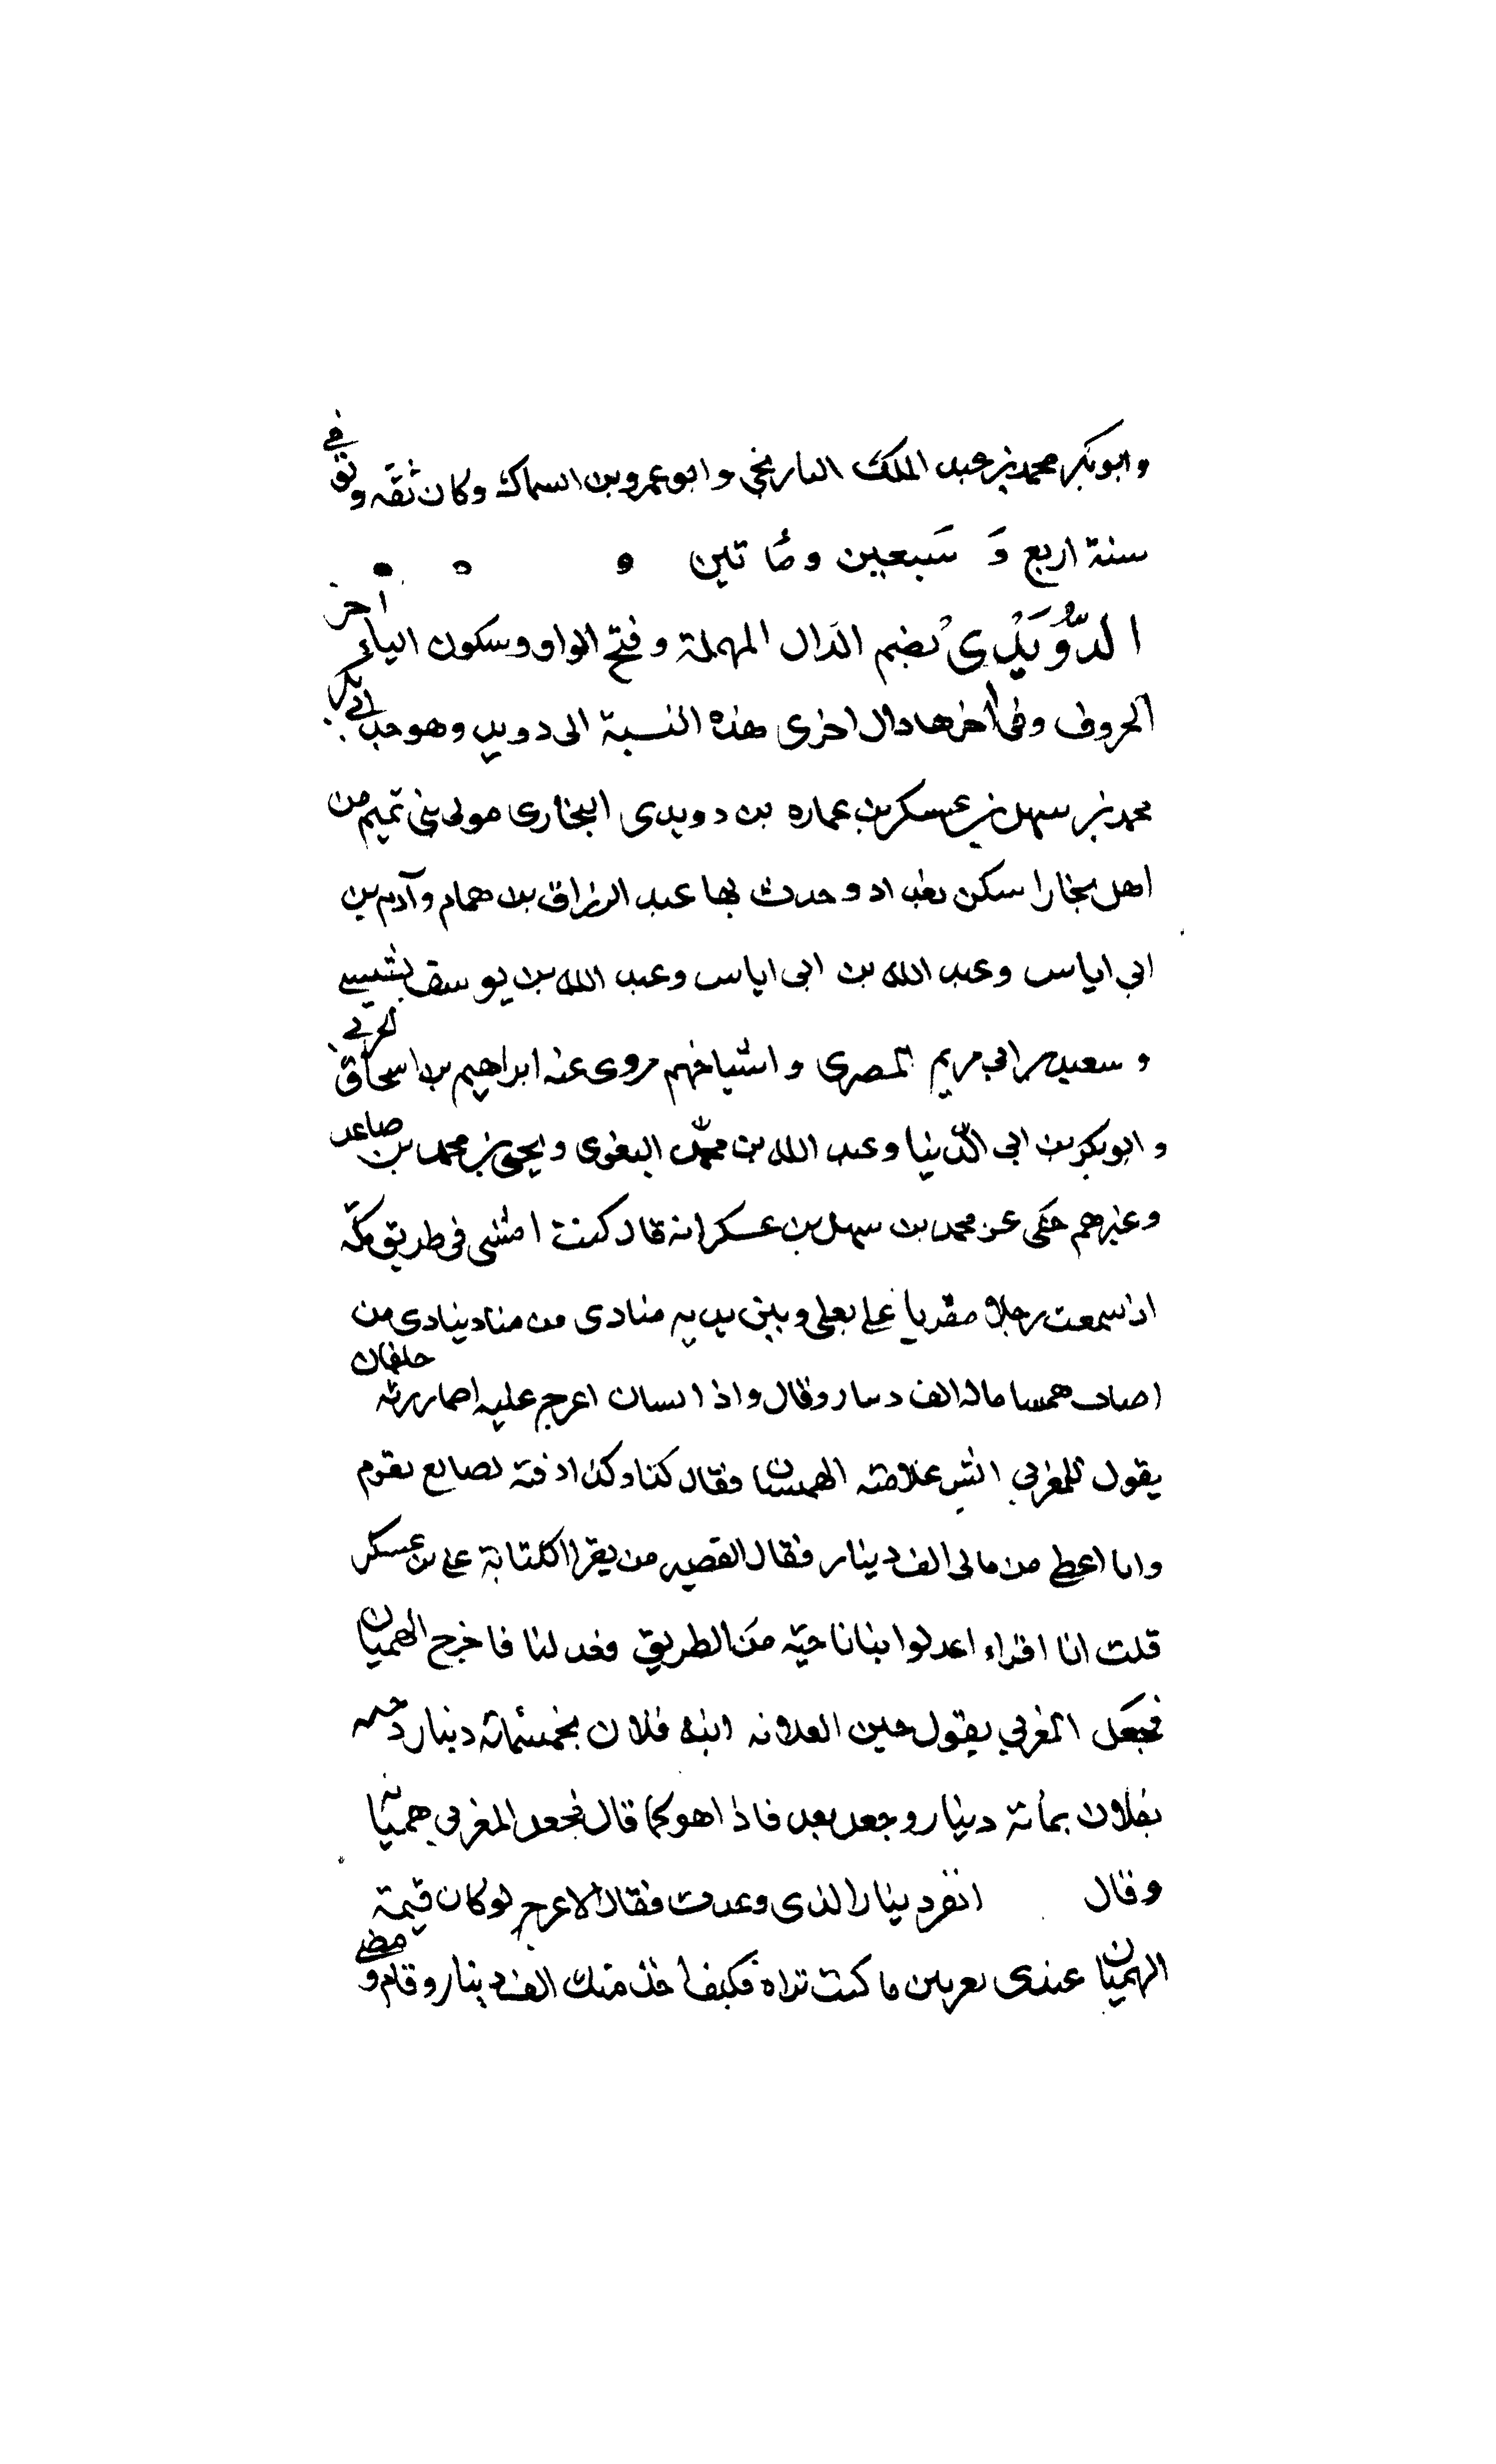 وابوبكر محمد بن عبد الملك التاريخي وابو عمرو بن السماك وكان ثقه وتوفي
سنة اربع وَ سَبعين ومُاتين
الدُّوَيْدِىْ بضم الدال المهملة وفتح الواو وسكون الياء آخر
الحروف وفى اخرها دال اخرى هذه النسبة الى دويد وهو جد ابي بكر
محمد بن سهل بن عسكر بن عماره بن دويدى البخارى مولى بنى تميم من
اهل بخارا سكن بغداد وحدث بها عبد الرزاق بن همام وآدم بن
ابي اياس وعبد الله بن ابى اياس وعبد الله بن يوسف
و سعيد بن ابي مريم المصرى واشياخهم روى عنه ابراهيم بن اسحاق الحربي
وابو بكر بن ابى الدّنيا وعبد الله بن محمّد البغوى ويحيى بن محمد بن صاعد
وغيرهم حكى عن محمد بن سهل بن عسكر انه قال كنت امشى فى طريق مكّه
اذ سمعت رجلا مغربيا على بغل وبين يديه منادى من مناد ينادى من
اصاب هميسا ماله الف دينار وقال واذا انسان اعرج عليه اطمار رثه خلقان
يقول للمغربي ايش علامته الهميان فقال كذا وكذا دفته بصايع بقوم
وانا اعطى من مالى الف دينار فقال القصير من يقرا الكتابة على بن عسكر
قلت انا اقراء اعدلوا بنا ناحيّه من الطريق فعدلنا فاخرج الهميان
فجعل المغربي يقول حين العلانه ابنه فلان بخمسمائة دينار
بفلان بمأتة دينار وجعل يعد فاذا هو كما قال فجعد المغربي هميانه
وقال انفردينارا لذى وعدت فقال الاعرج لو كان قيمة
الهميان عندى بعربين ما كنت تراه فكيف اخذ منك الف دينار وقام ومضى